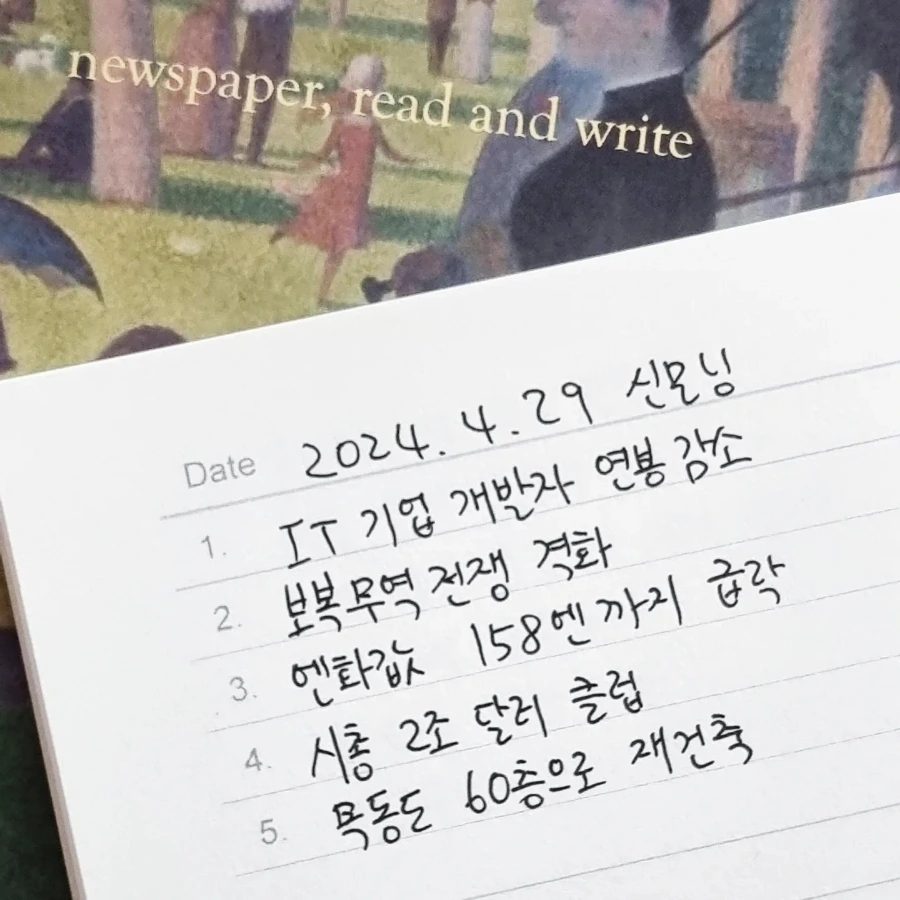 newspaper, read and write
Date 2024. 4. 29 신모닝
1. IT 기업 개발자 연봉 감소
2. 보복무역 전쟁 격화
3. 엔화값 158엔까지 급락
4. 시총 2조 달러 클럽
5. 목동도 60층으로 재건축